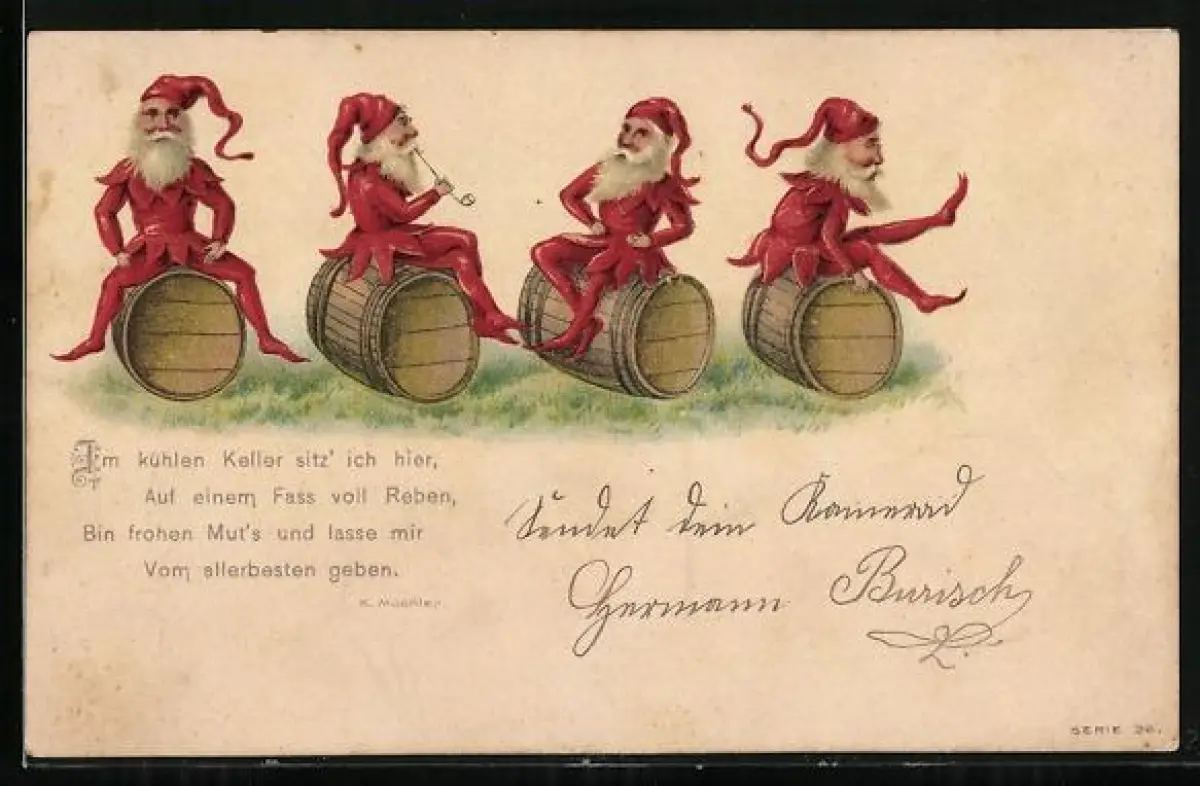 Im kühlen Keller sitz' ich hier,
Auf einem Fass voll Reben,
Bin frohen Mut's und lasse mir
Vom allerbesten geben.
K. Müchler
Sendet dein Kamerad
Hermann Burisch
SERIE 26.